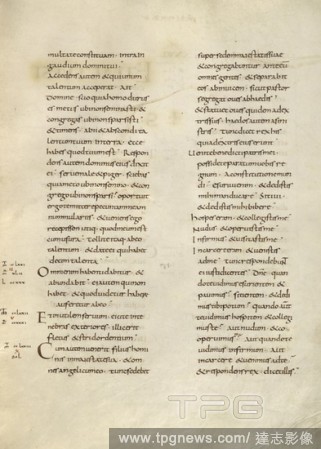 multa te constituam · intra in
gaudium domini tui
Accedens autem & qui unum
talentum acceperat ait
Domine scio quia homo durus
es metis ubi non seminasti &
congregas ubi non sparsisti
& timens abii & abscondi ta
lentum tuum in terra ecce
habes quod tuum est Respon
dens autem dominus eius dixit ei
serve male & piger sciebas
quia meto ubi non semino · & con
grego ubi non sparsi oportuit
ergo te mittere pecuniam meam
nummulariis & veniens ego
recepissem utique quod meum est
cum usura tollite itaque ab eo
talentum & date ei qui habet
decem talenta
Omni enim habenti dabitur &
abundabit ei autem qui non
habet & quod videtur habere
auferetur ab eo
Et inutilem servum eicite in te
nebras exteriores illic erit
fletus & stridor dentium
Cum autem venerit filius homi
nis in maiestate sua & om
nes angeli cum eo tunc sedebit
super sedem maiestatis suae
& congregabuntur ante eum
omnes gentes & separabit
eos ab invicem sicut pastor
segregat oves ab haedis
& statuet oves quidem a dex
tris suis haedos autem a sinis
tris Tunc dicet rex his
qui a dextris eius erunt
Venite benedicti patris mei
possidete paratum vobis reg
num a constitutione mun
di esurivi enim & dedistis
mihi manducare sitivi
& dedistis mihi bibere
Hospes eram & collegistis me
Nudus & operuistis me
Infirmus & visitastis me
In carcere eram & venistis
ad me tunc respondebunt
ei iusti dicentes Dne quan
do te vidimus esurientem &
pavimus sitientem & dedi
mus tibi potum quando autem
te vidimus hospitem & colleg
imus te Aut nudum & co
operuimus Aut quando te
vidimus infirmum aut
in carcere & venimus ad te
& respondens rex dicet illis
TPG
www.tpgnews.com / 達志影像